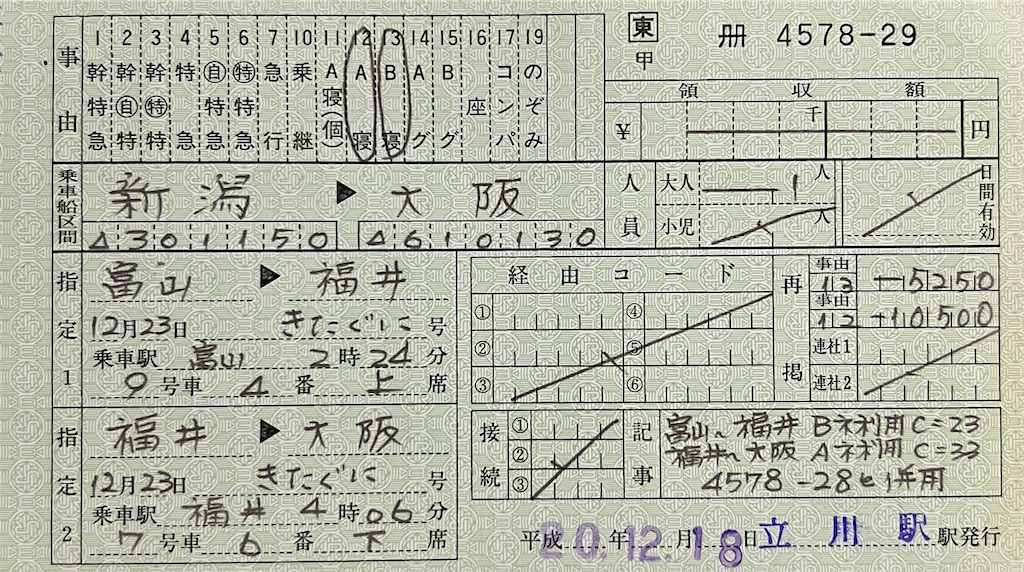 東 冊 4578-29
甲
事由
1 2 3 4 5 6 7 10 11 12 13 14 15 16 17 19
幹特急 幹自特 幹特特 特急 自特急 特特急 急行 乗継 A寝(個) A寝 B寝 Aグ Bグ 座 コンパ のぞみ
領 収 額
¥ 千 円
乗車船区間 新潟 ▶ 大阪
人員 大人 1人
小児 人
日間有効
4301150 4610130
指定1 富山 ▶ 福井
12月23日 きたぐに 号
乗車駅 富山 2時24分
9号車 4番 上席
経由コード
① ④
② ⑤
③ ⑥
再掲
事由 13 -15250
事由 12 +10500
連社1
連社2
指定2 福井 ▶ 大阪
12月23日 きたぐに 号
乗車駅 福井 4時06分
7号車 6番 下席
接続 ① ② ③
記事 富山〜福井 Bネ利用 C=23
福井〜大阪 Aネ利用 C=33
4578-28と併用
平成20年12月18日 立川駅 駅発行